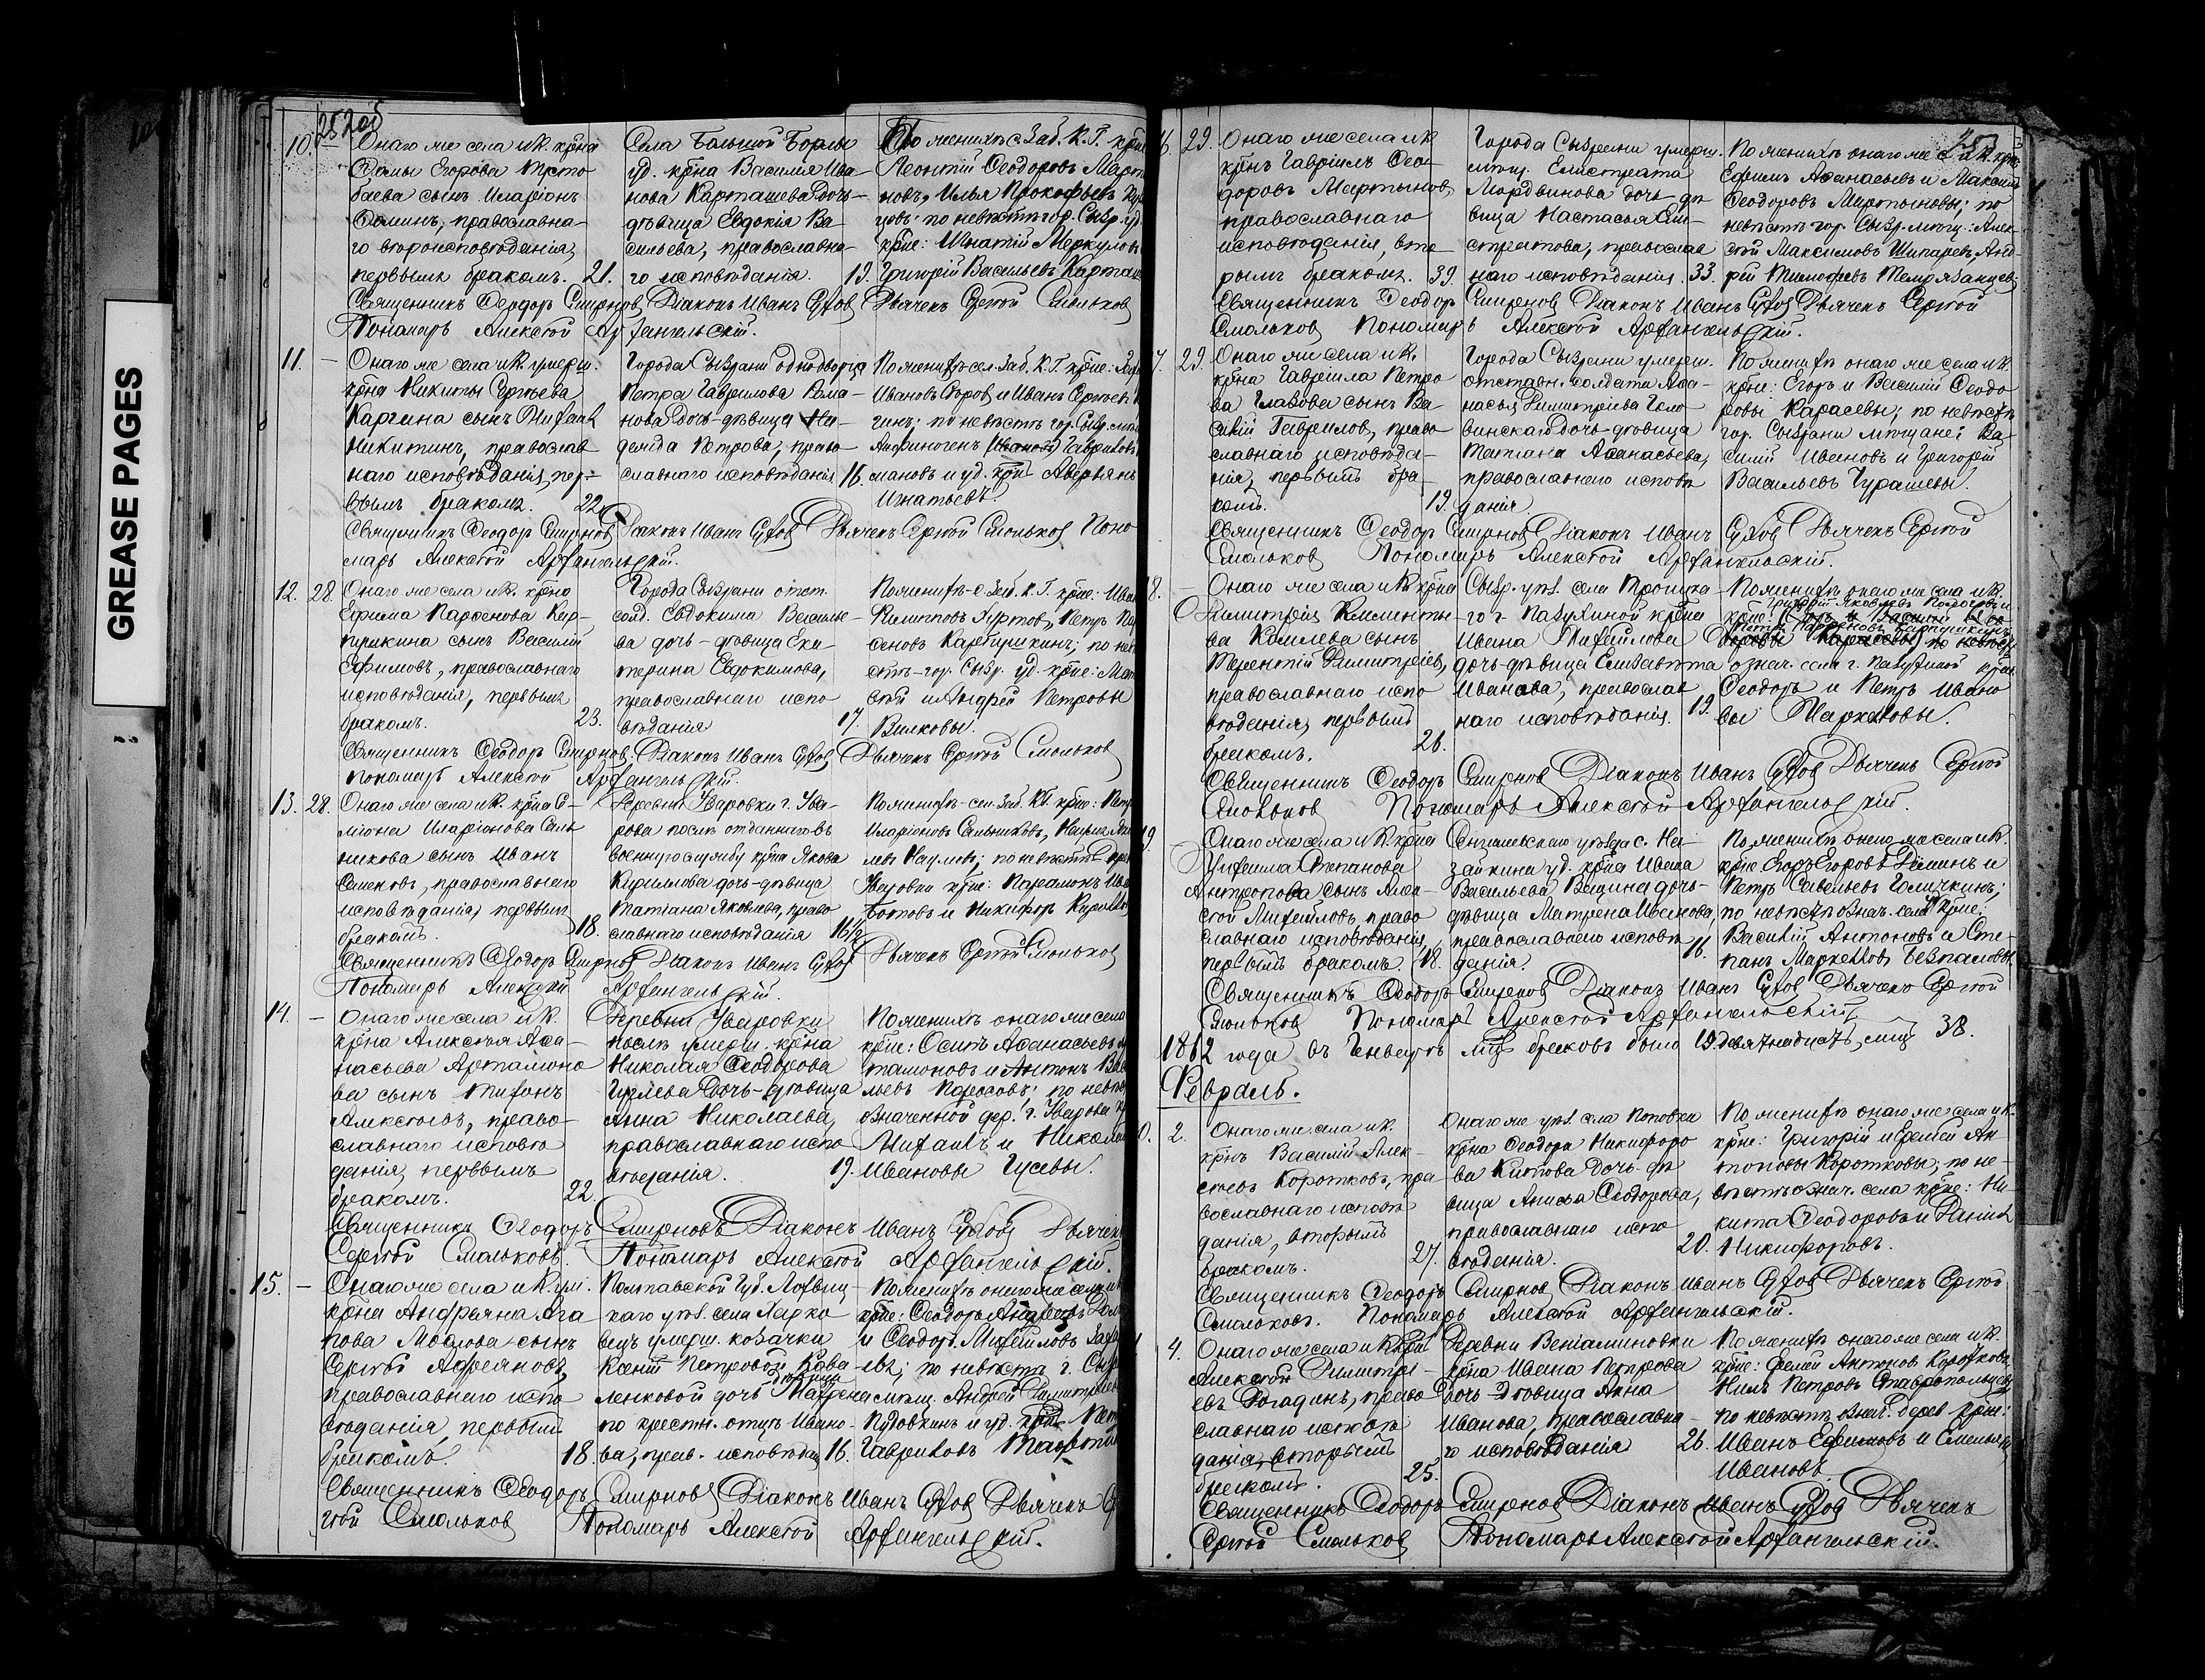 GREASE PAGES
10.
Онаго же села и К. крѣна
Ѳомы Егорова
сынъ Иларіонъ
Ѳоминъ, православна-
го вѣроисповѣданія,
первымъ бракомъ. 21.
Села Большой Борлы
уд. крѣна Василія Ива-
нова Карташева дочь-
дѣвица Евдокія Ва-
сильева, православна-
го исповѣданія. 19.
По женихѣ с. Заб. К. Г. крѣне
Леонтій Ѳеодоровъ Март
новъ, Илья Прокофьевъ
цовъ; по невѣстѣ гор. Сызр. уд.
крѣне: Игнатій Меркулов
Григорій Васильевъ Карта
Священникъ Ѳеодоръ Смирновъ Діаконъ Иванъ Суховъ Дьячекъ Сергѣй Смольковъ
Пономарь Алексѣй Архангельскій.
11. —
Онаго же села и К. умерш.
крѣна Никиты Сергѣева
Каргина сынъ Михаилъ
Никитинъ, православ
наго исповѣданія, пер-
вымъ бракомъ. 22.
Города Сызрани однодворца
Петра Гаврилова Рома-
нова дочь-дѣвица На-
дежда Петрова, право-
славнаго исповѣданія 16.
По женихѣ сел. Заб. К. Г. крѣне:
Ивановъ Егоровъ и Иванъ Сергѣевъ
гинъ; по невѣстѣ гор. Сызр.
Анѳиногенъ Ивановъ Гавриловъ
мановъ и уд. крѣне Аверьянъ
Игнатьевъ
Священникъ Ѳеодоръ Смирновъ Діаконъ Иванъ Суховъ Дьячекъ Сергѣй Смольковъ Поно
марь Алексѣй Архангельскій.
12. 28.
Онаго же села и К. крѣна
Ефима Парѳенова Кар-
пушкина сынъ Василій
Ефимовъ, православнаго
исповѣданія, первымъ
бракомъ. 23.
Города Сызрани отст.
солд. Евдокима Василье-
ва дочь-дѣвица Ека-
терина Евдокимова,
православнаго испо
вѣданія 17.
По женихѣ-с. Заб. К. Г. крѣне: Иван
Филипповъ Хуртовъ, Петръ Пар
ѳеновъ Карпушкинъ; по нев
ѣстѣ-гор. Сызр. уд. крѣне:
сѣй и Андрей Петровы
Вилковы.
Священникъ Ѳеодоръ Смирновъ Діаконъ Иванъ Суховъ Дьячекъ Сергѣй Смольковъ
Пономарь Алексѣй Архангельскій.
13. 28.
Онаго же села и К. крѣна Си-
міона Иларіонова Саль
никова сынъ Иванъ
Семеновъ, православнаго
исповѣданія, первымъ
бракомъ. 18.
Деревни Уваровки г. Ува-
рова послѣ отданнаго въ
военную службу крѣна Якова
Кирилова дочь-дѣвица
Татіана Яковлева, право
славнаго исповѣданія 16½
По женихѣ-сел. Заб. К. Г. крѣне: Петр
Иларіоновъ Сальниковъ,
левъ Наумовъ; по невѣстѣ
Уваровки крѣне: Парамонъ Ива
и Никифоръ Кирилов
Священникъ Ѳеодоръ Смирновъ Діаконъ Иванъ Суховъ Дьячекъ Сергѣй Смольковъ
Пономарь Алексѣй Архангельскій.
14. —
Онаго же села и К.
крѣна Алексѣя Аѳа-
насьева Артамоно
ва сынъ Тихонъ
Алексѣевъ, право-
славнаго исповѣ
данія, первымъ
бракомъ. 22.
Деревни Уваровки
послѣ умерш. крѣна
Николая Ѳеодорова
Гусева дочь-дѣвица
Анна Николаева,
православнаго испо
вѣданія. 19.
По женихѣ онаго же села
крѣне: Осипъ Аѳанасьевъ Ар
тамоновъ и Антонъ Ва
льевъ; по невѣс
означенной дер. г. Уварова
Михаилъ и Никола
Ивановы Гусевы.
Священникъ Ѳеодоръ Смирновъ Діаконъ Иванъ Суховъ Дьячекъ
Сергѣй Смольковъ. Пономарь Алексѣй Архангельскій.
15. —
Онаго же села и К. ум.
крѣна Андріяна Ага
пова Маслова сынъ
Сергѣй Адріановъ,
православнаго испо
вѣданія, первымъ
бракомъ. 18.
Полтавской Губ. Лохвиц-
каго уѣз. села
умерш. козачки
Ксеніи Петровой Кова
ленковой дочь дѣвица Матрена
по крестн. отцѣ Ивано-
ва, прав. исповѣдан 16.
По женихѣ онаго же села
крѣне: Ѳеодоръ Андреевъ
и Ѳеодоръ Михайловъ
евъ; по невѣстѣ г. Сыз
мѣщ. Андрей Димитріевъ
Пудовкинъ и уд. крѣне Пет
Гавриловъ
Священникъ Ѳеодоръ Смирновъ Діаконъ Иванъ Суховъ Дьячекъ Се
ргѣй Смольковъ Пономарь Алексѣй Архангельскій.
6. 29.
Онаго же села и К
крѣнъ Гавріилъ Ѳео-
доровъ Мартыновъ,
православнаго
исповѣданія, вто-
рымъ бракомъ. 39.
Города Сызрани умерш.
мѣщ. Елистрата
Мордвинова дочь дѣ-
вица Настасья Ели-
стратова, православ
наго исповѣданія. 33.
По женихѣ онаго же с. и К. крѣне
Ефимъ Аѳанасьевъ и Максимъ
Ѳеодоровъ Мартыновы; по
невѣстѣ гор. Сызр. мѣщ: Алек-
сѣй Максимовъ Шипаревъ, Анд-
рей Тимоѳеевъ Темрязанцевъ
Священникъ Ѳеодоръ Смирновъ Діаконъ Иванъ Суховъ Дьячекъ Сергѣй
Смольковъ Пономарь Алексѣй Архангельскій.
7. 29.
Онаго же села и К.
крѣна Гавріила Петро
ва Глазова сынъ Ва-
силій Гавриловъ, право
славнаго исповѣда-
нія, первымъ бра-
комъ. 19.
Города Сызрани умерш.
отставн. солдата Аѳа-
насья Димитріева Голо
винскаго дочь-дѣвица
Татіана Аѳанасьева,
православнаго исповѣ
данія.
По женихѣ онаго же села и К.
крѣне: Егоръ и Василій Ѳеодо
ровы Карасевы; по невѣстѣ
гор. Сызрани мѣщане: Ва-
силій Ивановъ и Григорій
Васильевъ Чурашевы.
Священникъ Ѳеодоръ Смирновъ Діаконъ Иванъ Суховъ Дьячекъ Сергѣй
Смольковъ Пономарь Алексѣй Архангельскій.
8. —
Онаго же села и К. крѣна
Димитрія Климентье
ва Комлева сынъ
Терентій Димитріевъ,
православнаго испо
вѣданія, первымъ
бракомъ. 26.
Сызр. уѣз. села Трошка
го г. Пазухиной крѣна
Ивана Михайлова
дочь-дѣвица Елизавета
Иванова, православ
наго исповѣданія. 19.
По женихѣ онаго же села и К.
Григорій Яковлевъ
крѣне: Егоръ и Василій Ѳео
Петръ Парѳеновъ Карпушкинъ
доровы Карасевы; по невѣстѣ
означ. села г. Пазухиной крѣне
Ѳеодоръ и Петръ Ивано
вы Маркеловы.
Священникъ Ѳеодоръ Смирновъ Діаконъ Иванъ Суховъ Дьячекъ Сергѣй
Смольковъ Пономарь Алексѣй Архангельскій.
19.
Онаго же села и К. крѣна
Михаила Степанова
Антропова сынъ Алек-
сѣй Михайловъ, право
славнаго исповѣданія,
первымъ бракомъ. 18.
Сенгилеевскаго уѣзда с. На-
зайкина уд. крѣна Ивана
Васильева дочь-
дѣвица Матрена Иванова,
православнаго исповѣ
данія. 16.
По женихѣ онаго же села и К.
крѣне Егоръ Егоровъ Деминъ и
Петръ Савельевъ Голичкинъ;
по невѣстѣ Означ. села крѣне:
Василій Антоновъ и Сте-
панъ Маркеловъ Безпаловы.
Священникъ Ѳеодоръ Смирновъ Діаконъ Иванъ Суховъ Дьячекъ Сергѣй
Смольковъ Пономарь Алексѣй Архангельскій.
1862 года въ Генварѣ мцѣ браковъ было 19. девятнадцать, лицъ 38.
Февраль.
0. 2.
Онаго же села и К.
крѣнъ Василій Алек-
сѣевъ Коротковъ, пра
вославнаго исповѣ
данія, вторымъ
бракомъ. 27.
Онаго же уѣз. села Поповки
крѣна Ѳеодора Никифоро
ва Китова дочь-дѣ
вица Анисья Ѳеодорова,
православнаго испо
вѣданія. 20.
По женихѣ онаго же села и К.
крѣне: Григорій и Еремѣй Ан
тоновы Коротковы; по не-
вѣстѣ означ. села крѣне: Ни-
кита Ѳеодоровъ и Данилъ
Никифоровъ.
Священникъ Ѳеодоръ Смирновъ Діаконъ Иванъ Суховъ Дьячекъ Сергѣй
Смольковъ. Пономарь Алексѣй Архангельскій.
4.
Онаго же села и К. крѣнъ
Алексѣй Димитрі-
евъ Рогадинъ, право
славнаго исповѣ
данія, вторымъ
бракомъ. 25.
Деревни Веніаминовки
крѣна Ивана Петрова
дочь дѣвица Анна
Иванова, православна-
го исповѣданія 26.
По женихѣ онаго же села и К.
крѣне: Антоновъ Коротковъ,
Нилъ Петровъ Ставропольцевъ
по невѣстѣ Означ. дерев. крѣне:
Иванъ Ефимовъ и Емельянъ
Ивановъ.
Священникъ Ѳеодоръ Смирновъ Діаконъ Иванъ Суховъ Дьячекъ
Сергѣй Смольковъ Пономарь Алексѣй Архангельскій.